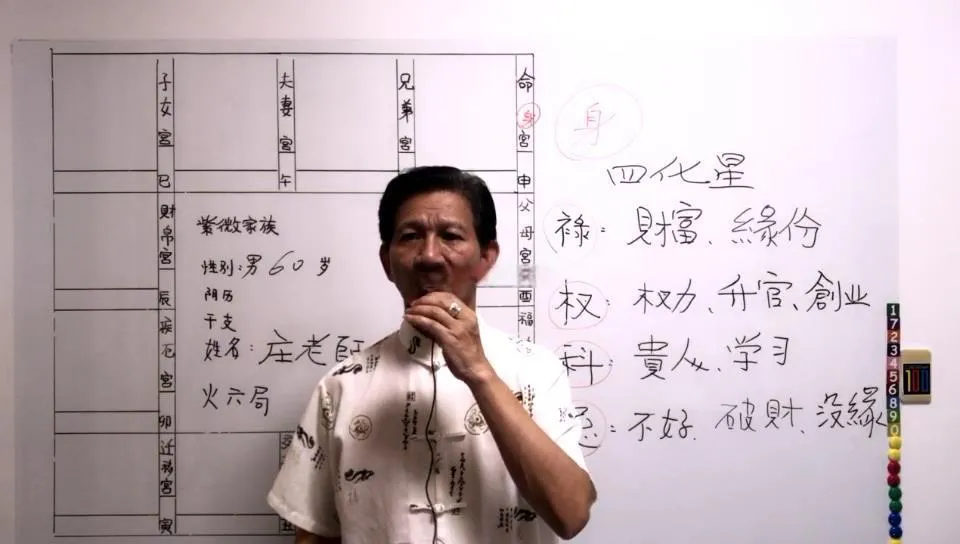 子女宮
巳
夫妻宮
午
兄弟宮
命身宮
申
財帛宮
辰
疾厄宮
卯
迁移宮
寅
父母宮
酉
福
丑
紫微家族
性别:男60岁
阴历
干支
姓名:庄老師
火六局
身
四化星
祿:財富、緣份
权:权力、升官、創业
科:貴人、学习
忌:不好、破財、没緣
1
7
2
3
4
5
6
8
9
0
100